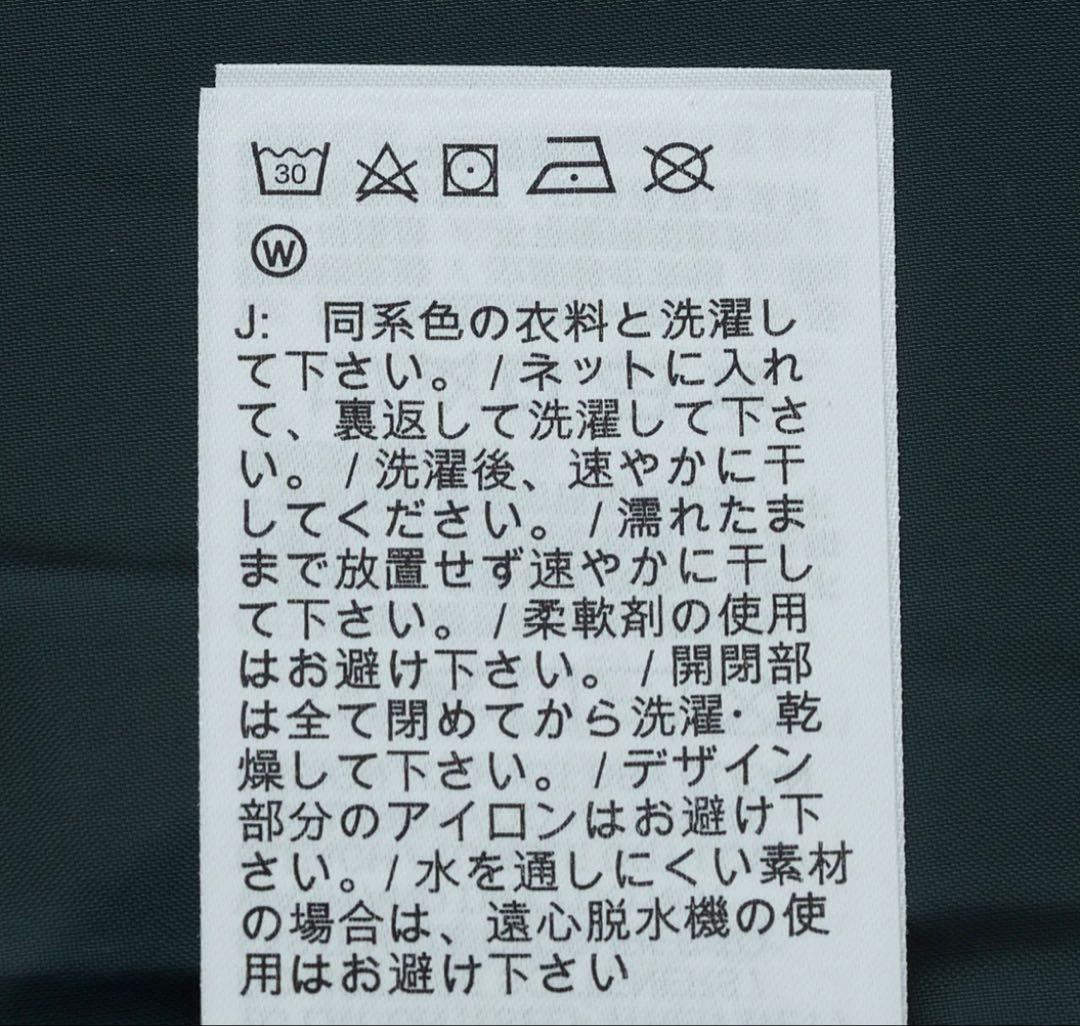 30
W
J: 同系色の衣料と洗濯し
て下さい。/ネットに入れ
て、裏返して洗濯して下さ
い。/洗濯後、速やかに干
してください。/濡れたま
まで放置せず速やかに干し
て下さい。/柔軟剤の使用
はお避け下さい。/開閉部
は全て閉めてから洗濯・乾
燥して下さい。/デザイン
部分のアイロンはお避け下
さい。/水を通しにくい素材
の場合は、遠心脱水機の使
用はお避け下さい